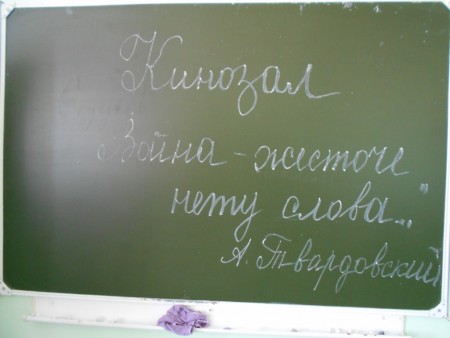 Кинозал
"Война – жесточе
нету слова..."
А. Твардовский